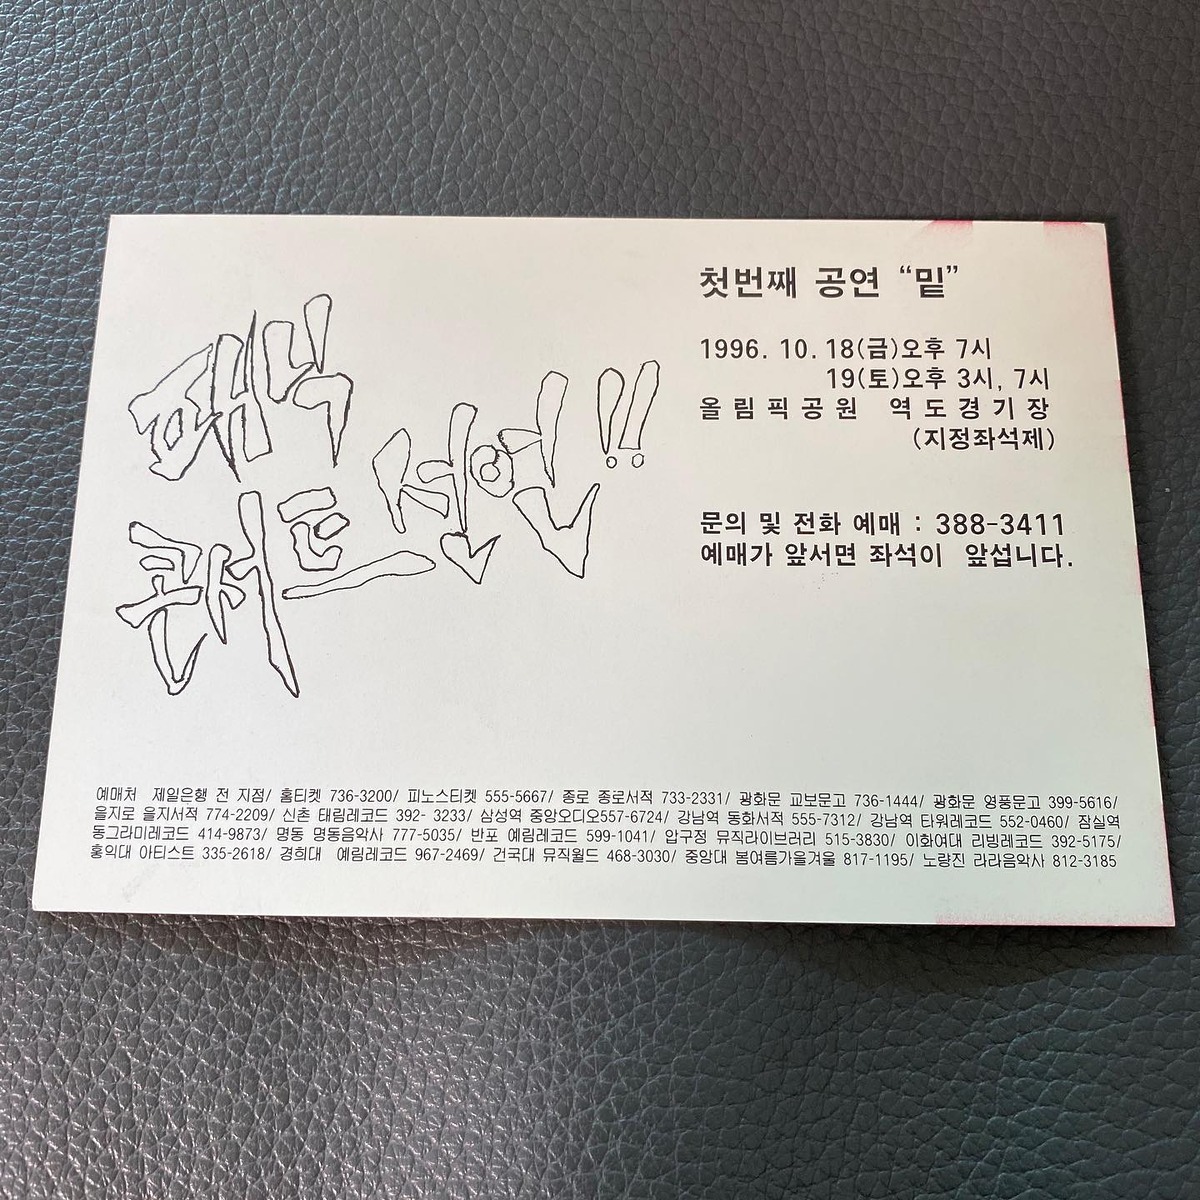 패닉
콘서트 서언!!
첫번째 공연 “밑”
1996. 10. 18(금)오후 7시
19(토)오후 3시, 7시
올림픽공원 역도경기장
(지정좌석제)
문의 및 전화 예매 : 388-3411
예매가 앞서면 좌석이 앞섭니다.
예매처 제일은행 전 지점/ 홈티켓 736-3200/ 피노스티켓 555-5667/ 종로 종로서적 733-2331/ 광화문 교보문고 736-1444/ 광화문 영풍문고 399-5616/
을지로 을지서적 774-2209/ 신촌 태림레코드 392- 3233/ 삼성역 중앙오디오557-6724/ 강남역 동화서적 555-7312/ 강남역 타워레코드 552-0460/ 잠실역
동그라미레코드 414-9873/ 명동 명동음악사 777-5035/ 반포 예림레코드 599-1041/ 압구정 뮤직라이브러리 515-3830/ 이화여대 리빙레코드 392-5175/
홍익대 아티스트 335-2618/ 경희대 예림레코드 967-2469/ 건국대 뮤직월드 468-3030/ 중앙대 봄여름가을겨울 817-1195/ 노량진 라라음악사 812-3185